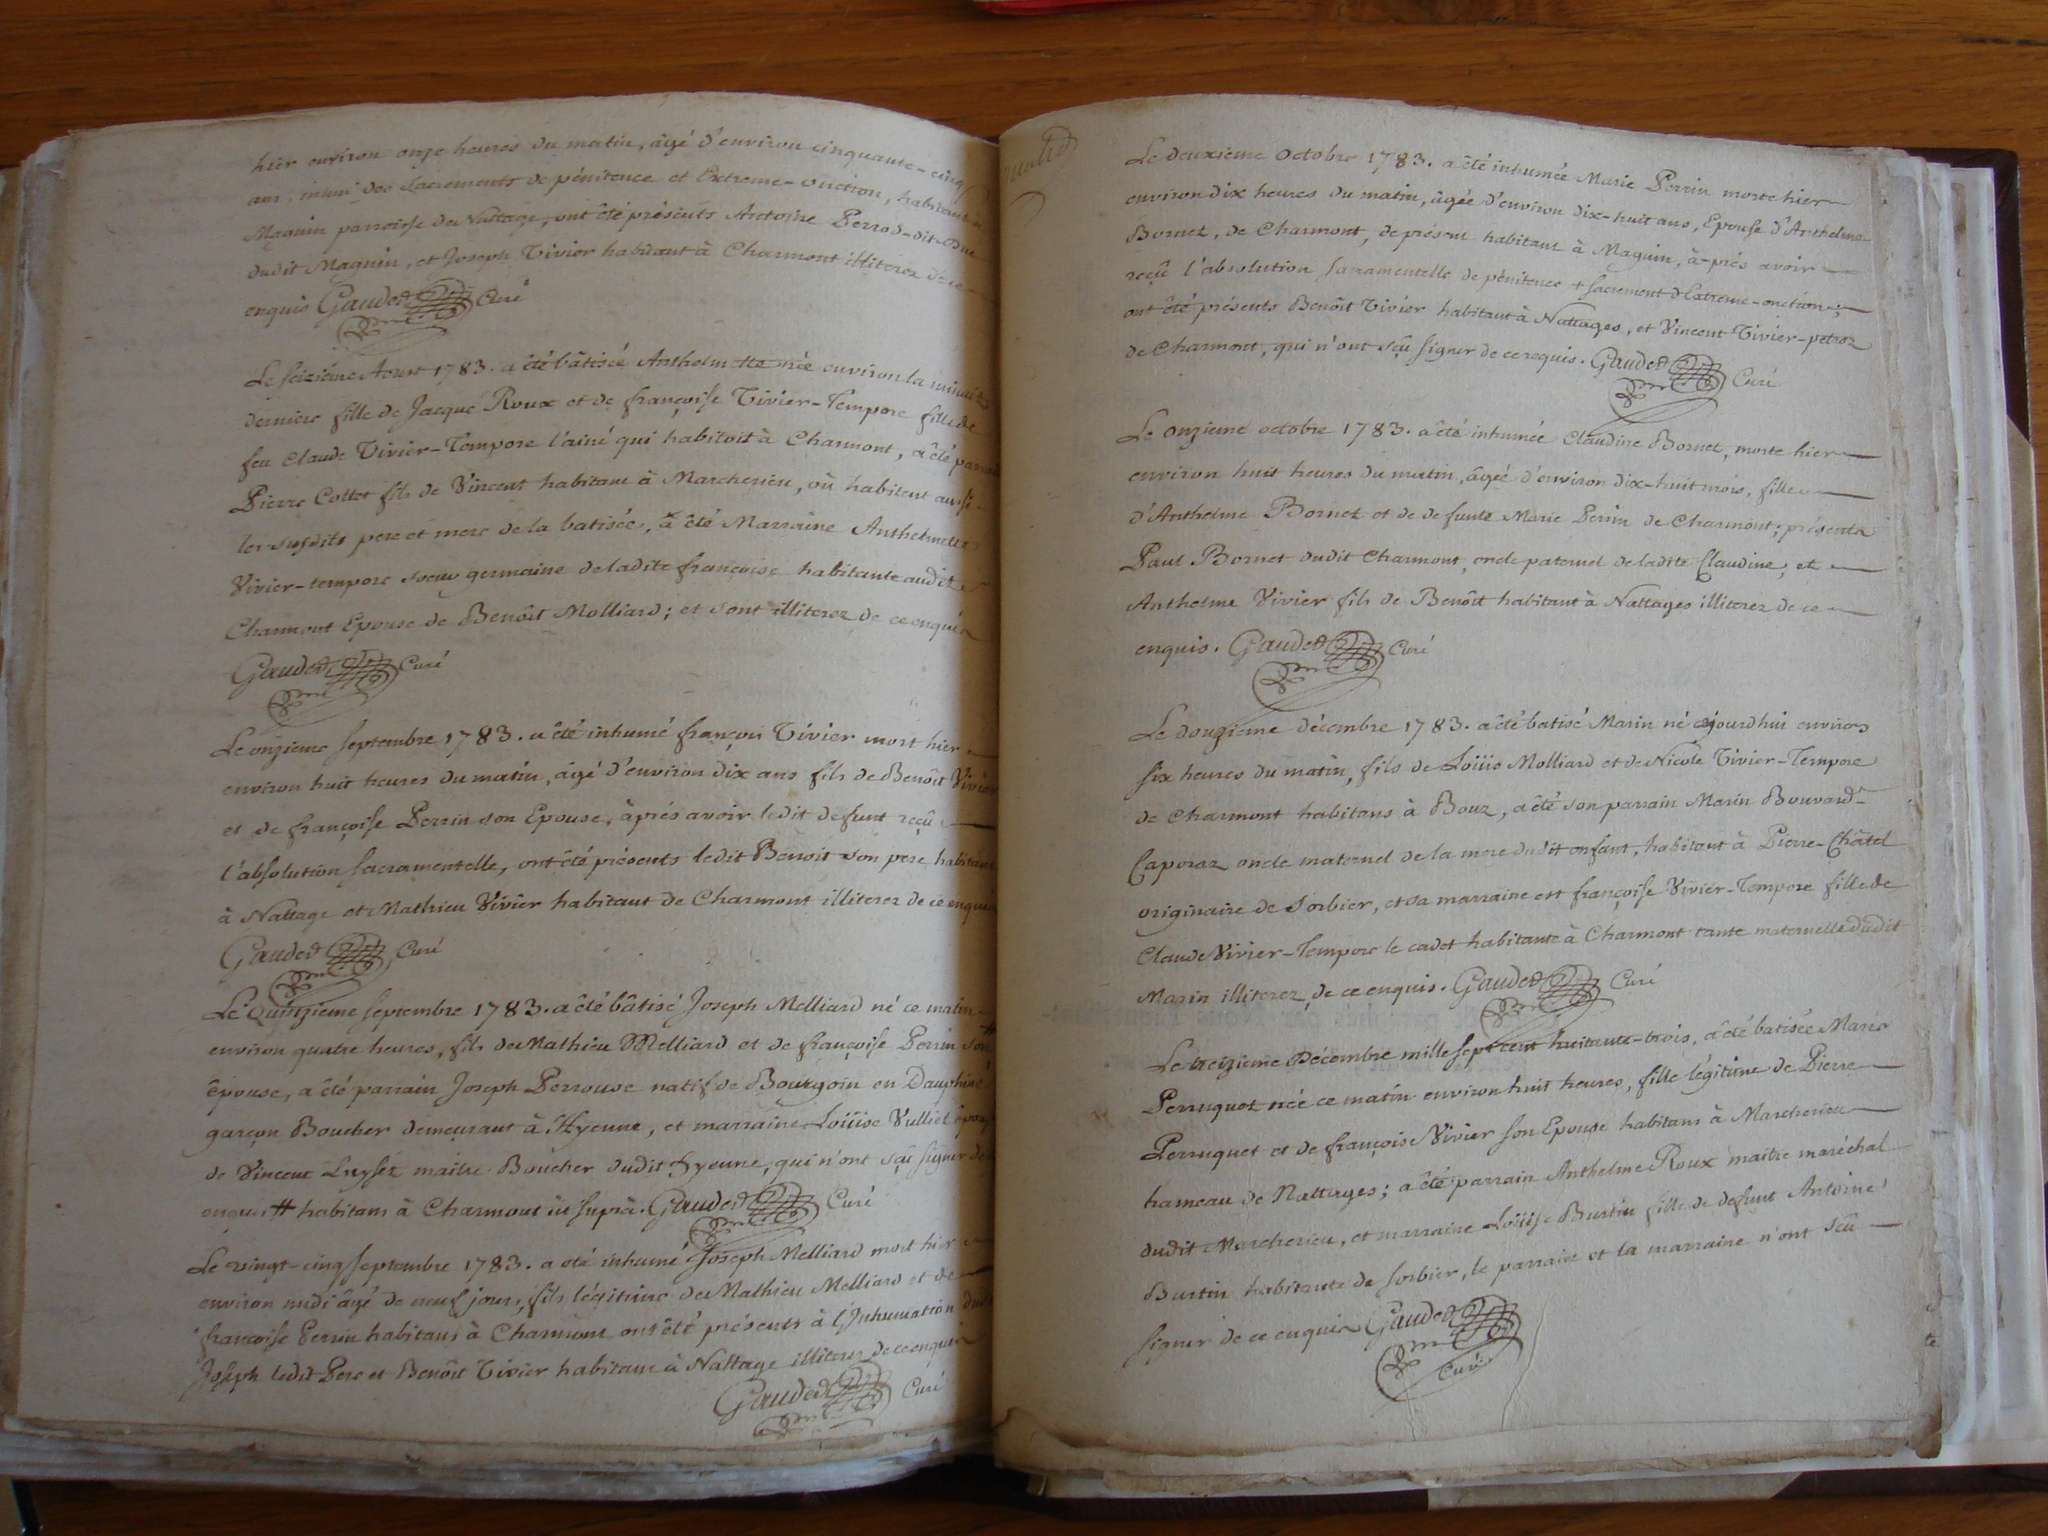 hier environ onze heures du matin, âgé d'environ cinquante-cinq
ans, muni des sacrements de pénitence et Extreme-onction, habitant
Maguin parroisse de Nattage, ont été présents Antoine Perrod-dit
dudit Maguin, et Joseph Vivier habitant à Charmont illiterez de ce
enquis Gaudet Curé
Le seizième Aoust 1783. a été bâtisée Anthelmette née environ la minuit
derniere fille de Jacque Roux et de françoise Vivier-Tempore fille de
feu Claude Vivier-Tempore l'ainé qui habitoit à Charmont, a été parrain
Pierre Collet fils de Vincent habitant à Marcherieu, où habitent aussi
les susdits pere et mere de la batisée, a été Marraine Anthelmette
Vivier-tempore soeur germaine de ladite françoise habitante audit
Charmont Epouse de Benoît Molliard; et sont illiterez de ce enquis
Gaudet Curé
Le onzieme septembre 1783. a été inhumé françois Vivier mort hier
environ huit heures du matin, âgé d'environ dix ans fils de Benoît Vivier
et de françoise Perrin son Epouse, àprés avoir ledit defunt reçû
l'absolution sacramentelle, ont été présents ledit Benoit son pere habitant
à Nattage et Mathieu Vivier habitant de Charmont illiterez de ce enquis
Gaudet Curé
Le Quinzieme septembre 1783. a été bâtisé Joseph Melliard né ce matin
environ quatre heures, fils de Mathieu Melliard et de françoise Perrin son #
épouse, a été parrain Joseph Perrouse natif de Bourgoin en Dauphiné
garçon Boucher demeurant à Hyenne, et marraine Loüise Vulliet épouse
de Vincent Luyset maitre Boucher dudit hyenne, qui n'ont sçu signer de
enquis # habitans à Charmont ut suprà. Gaudet Curé
Le vingt-cinq septembre 1783. a eté inhumé Joseph Melliard mort hier
environ midi âgé de neuf jours, fils légitime de Mathieu Melliard et de
françoise Perrin habitans à Charmont ont été présents à l'Inhumation dudit
Joseph ledit Pere et Benoît Vivier habitant à Nattage illiterez de ce enquis
Gaudet Curé
Le deuxieme octobre 1783. a été inhumée Marie Perrin morte hier
environ dix heures du matin, âgée d'environ dix-huit ans, Epouse d'Anthelme
Bornet, de Charmont, de présent habitant à Maguin, à-prés avoir
reçû l'absolution sacramentelle de pénitence + sacrement d'Extreme-onction;
ont été présents Benoît Vivier habitant à Nattages, et Vincent Vivier-petroz
de Charmont, qui n'ont sçû signer de ce requis. Gaudet Curé
Le onzieme octobre 1783. a été inhumée Claudine Bornet, morte hier
environ huit heures du matin, âgée d'environ dix-huit mois, fille
d'Anthelme Bornet et de defunte Marie Perrin de Charmont; présents
Paul Bornet dudit Charmont, oncle paternel de ladite Claudine, et
Anthelme Vivier fils de Benoît habitant à Nattages illiterez de ce
enquis. Gaudet Curé
Le douzieme décembre 1783. a été batisé Marin né aujourdhui environ
six heures du matin, fils de Loüis Molliard et de Nicole Vivier-Tempore
de Charmont habitans à Bouz, a été son parrain Marin Bouvard
Caporaz oncle maternel de la mere dudit enfant, habitant à Pierre-Châtel
originaire de Sorbier, et sa marraine est françoise Vivier-Tempore fille de
Claude Vivier-Tempore le cadet habitante à Charmont tante maternelle dudit
Marin illiterez, de ce enquis. Gaudet Curé
Le treizieme Décembre mille sept cent huitante-trois, a été batisée Marie
Perruquet née ce matin environ huit heures, fille légitime de Pierre
Perruquet et de françoise Vivier son Epouse habitans à Marcherieu
hameau de Nattages; a été parrain Anthelme Roux maitre maréchal
dudit Marcherieu, et marraine Loüise Burtin fille de defunt Antoine
Burtin habitante de Sorbier, le parrain et la marraine n'ont sçû
signer de ce enquis Gaudet
Curé